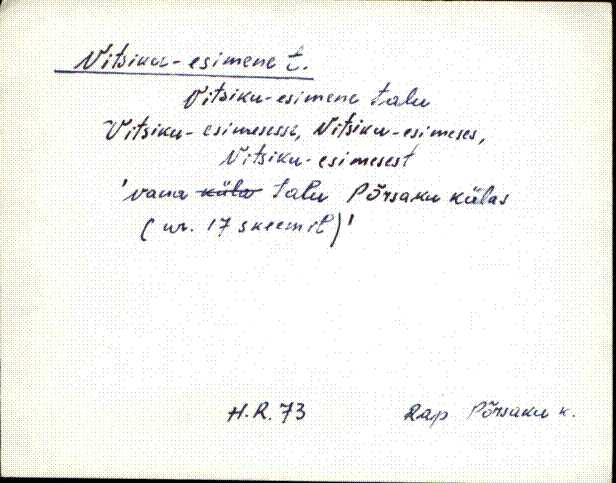 Vitsiku-esimene t.
Vitsiku-esimene talu
Vitsiku-esimesesse, Vitsiku-esimeses,
Vitsiku-esimesest
'vana küla talu Põrsaku külas
(nr. 17 skeemil)'
H.R. 73 Rap Põrsaku k.